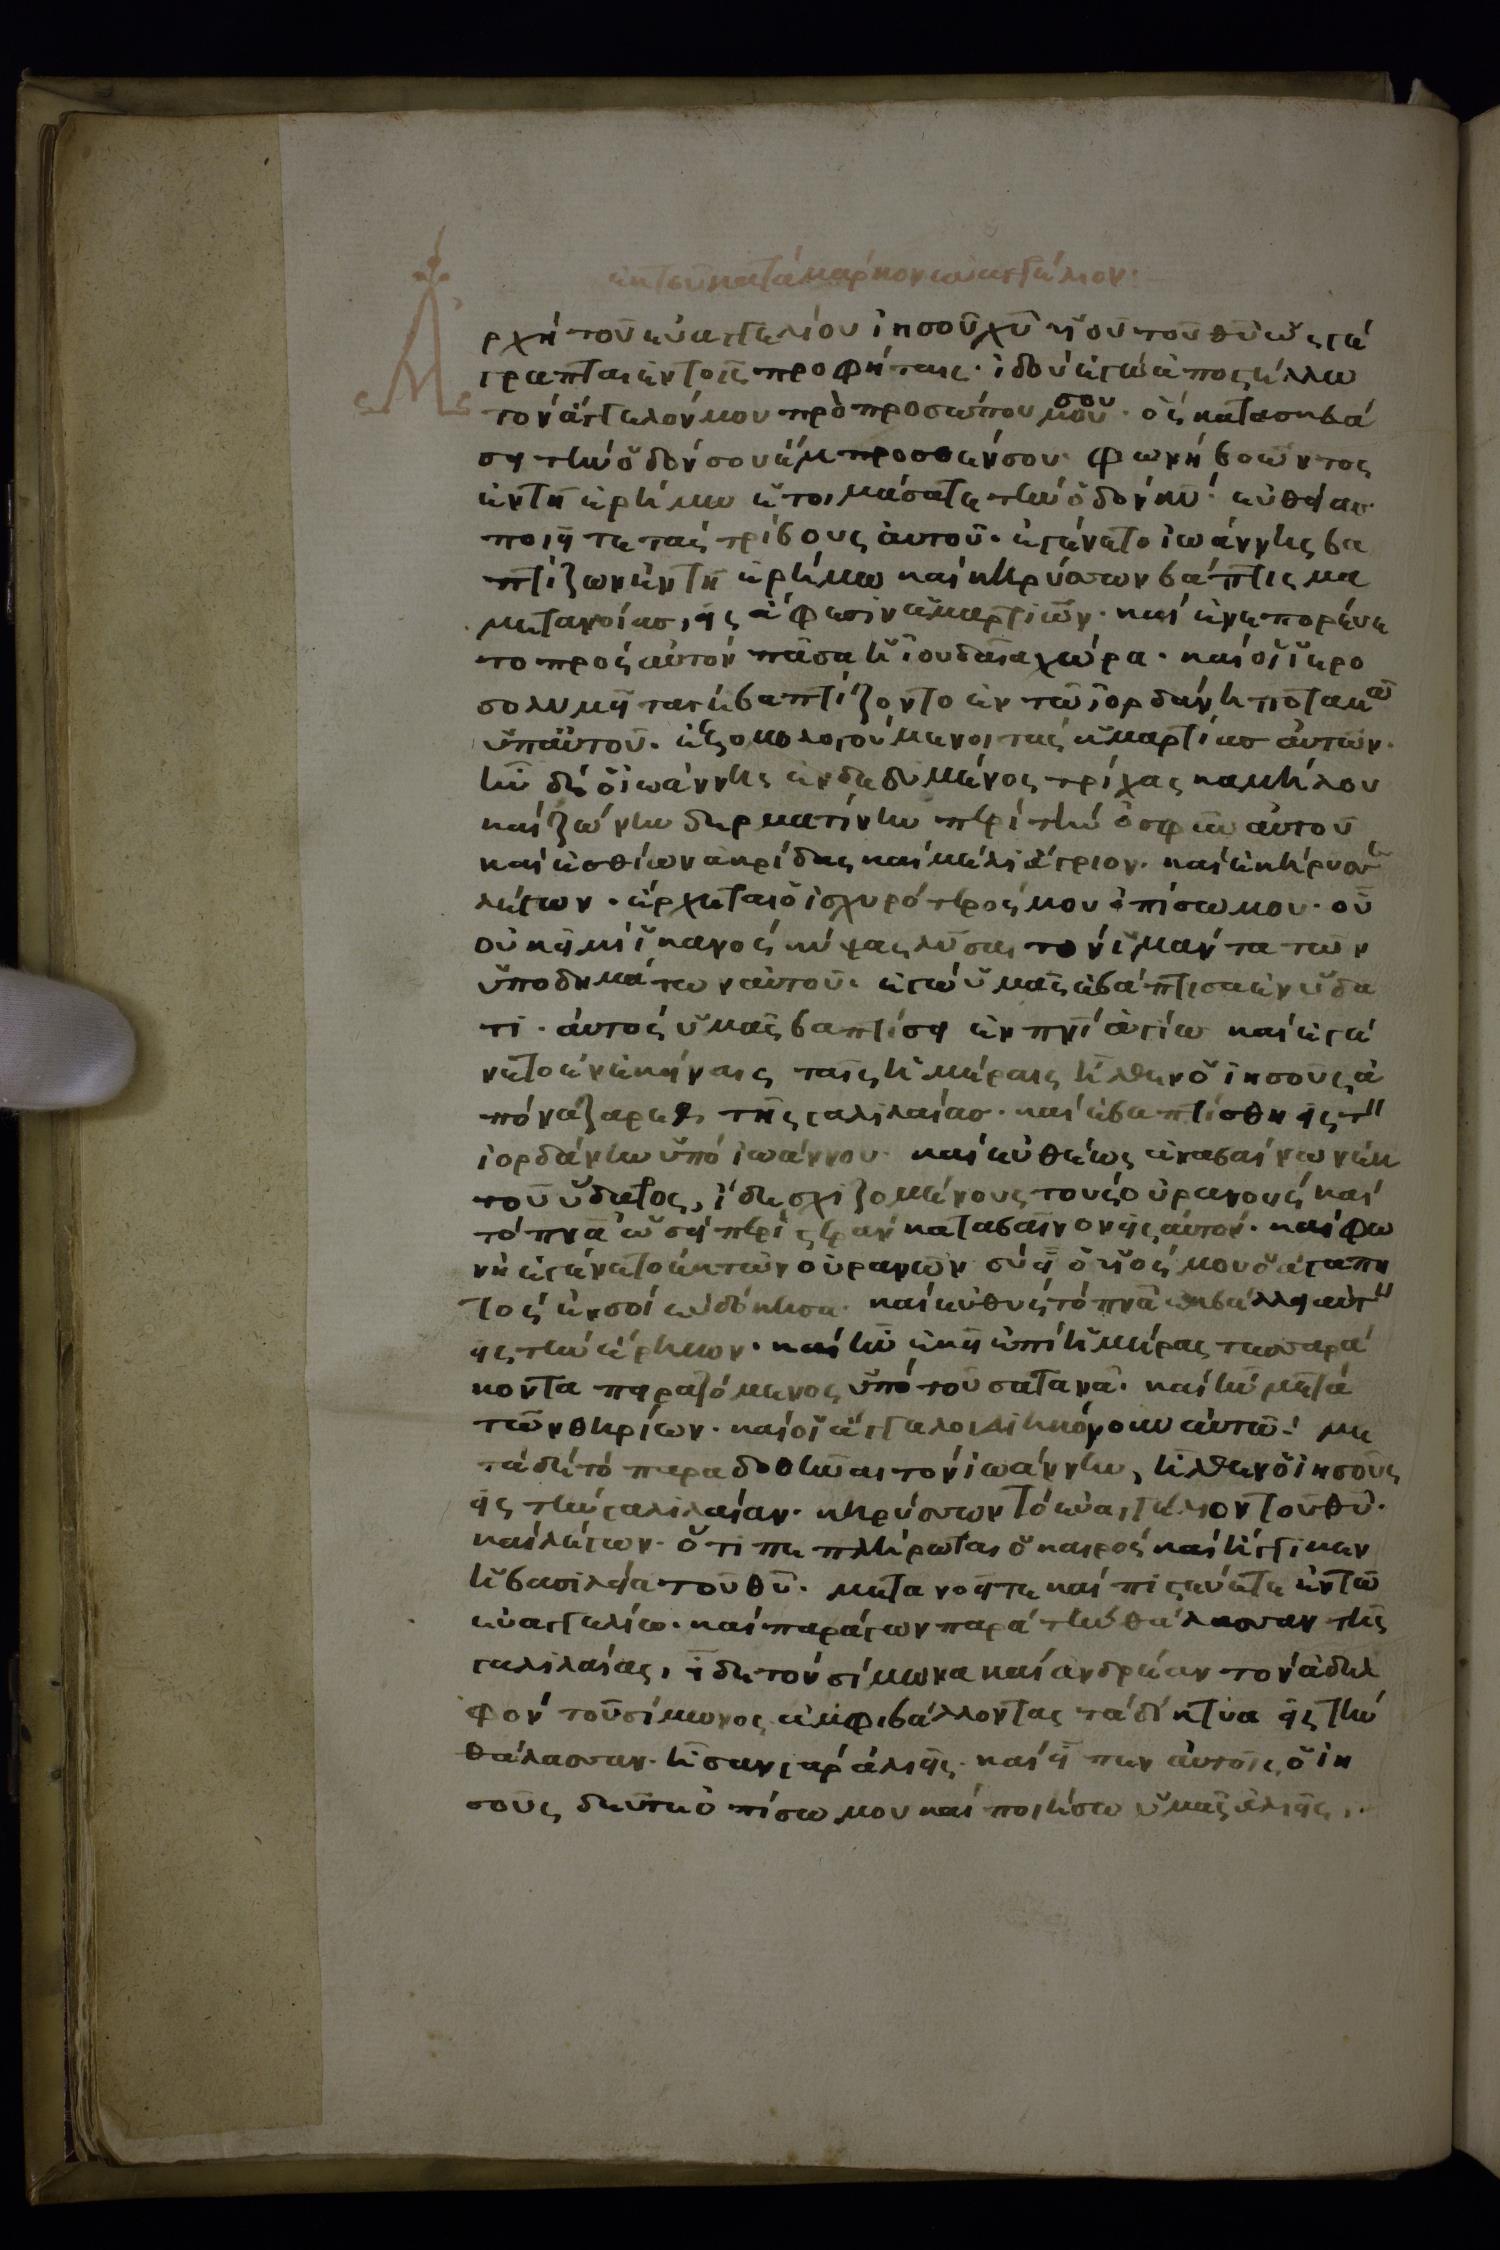 ἐκ τοῦ κατὰ μάρκον εὐαγγέλιον·
Ἀρχὴ τοῦ εὐαγγελίου ἰησοῦ χῦ υἱοῦ τοῦ θῦ ὡς γέ
γραπται ἐν τοῖς προφήταις· ἰδοὺ ἐγὼ ἀποστέλλω
τὸν ἄγγελόν μου πρὸ προσώπου μου σου· ὃς κατασκευά
σει τὴν ὁδόν σου ἔμπροσθέν σου· φωνὴ βοῶντος
ἐν τῇ ἐρήμω ἑτοιμάσατε τὴν ὁδὸν κῦ· εὐθείας
ποιεῖτε τὰς τρίβους αὐτοῦ· ἐγένετο ἰωάννης βα
πτίζων ἐν τῇ ἐρήμω καὶ κηρύσσων βάπτισμα
μετανοίας, εἰς ἄφεσιν ἁμαρτιῶν· καὶ ἐξεπορεύε
το πρὸς αὐτὸν πᾶσα ἡ ἰουδαῖα χώρα· καὶ οἱ ἱερο
σολυμεῖται ἐβαπτίζοντο ἐν τῶ ἰορδάνη ποταμῶ
ὑπ' αὐτοῦ· ἐξομολογούμενοι τὰς ἁμαρτίας αὐτῶν·
ἦν δὲ ὁ ἰωάννης ἐνδεδυμένος τρίχας καμήλου
καὶ ζώνην δερματίνην περὶ τὴν ὀσφὺν αὐτοῦ
καὶ ἐσθίων ἀκρίδας καὶ μέλι ἄγριον· καὶ ἐκήρυσσε
λέγων· ἔρχεται ὁ ἰσχυρότερός μου ὀπίσω μου· οὗ
οὐκ εἰμὶ ἱκανὸς κύψας λῦσαι τὸν ἱμάντα τῶν
ὑποδημάτων αὐτοῦ· ἐγὼ ὑμᾶς ἐβάπτισα ἐν ὕδα
τι· αὐτὸς ὑμᾶς βαπτίσει ἐν πνὶ ἁγίω καὶ ἐγέ
νετο ἐν ἐκείναις ταῖς ἡμέραις ἦλθεν ὁ ἰησοῦς ἀ
πὸ ναζαρὲθ τῆς γαλιλαίας· καὶ ἐβαπτίσθη εἰς τὸν
ἰορδάνην ὑπὸ ἰωάννου· καὶ εὐθέως ἀναβαίνων ἐκ
τοῦ ὕδατος, ἶδε σχιζομένους τοὺς οὐρανοὺς καὶ
τὸ πνᾶ ὡσεὶ περιστερὰν καταβαῖνον εἰς αὐτόν· καὶ φω
νὴ ἐγένετο ἐκ τῶν οὐρανῶν σὺ εἶ ὁ υἱός μου ὁ ἀγαπη
τὸς ἐν σοὶ εὐδόκησα· καὶ εὐθὺς τὸ πνᾶ ἐκβάλλει αὐτὸν
εἰς τὴν ἔρημον· καὶ ἦν ἐκεῖ ἐπὶ ἡμέρας τεσσαρά
κοντα πειραζόμενος ὑπὸ τοῦ σατανᾶ· καὶ ἦν μετὰ
τῶν θηρίων· καὶ οἱ ἄγγελοι διηκόνουν αὐτῶ· με
τὰ δὲ τὸ παραδοθῆναι τὸν ἰωάννην, ἦλθεν ὁ ἰησοῦς
εἰς τὴν γαλιλαίαν· κηρύσσων τὸ εὐαγγέλιον τοῦ θῦ·
καὶ λέγων· ὅτι πεπλήρωται ὁ καιρὸς καὶ ἤγγικεν
ἡ βασιλεία τοῦ θῦ· μετανοεῖτε καὶ πιστεύετε ἐν τῶ
εὐαγγελίω· καὶ παράγων παρὰ τὴν θάλασσαν τῆς
γαλιλαίας, ἶδε τὸν σίμωνα καὶ ἀνδρέαν τὸν ἀδελ
φὸν τοῦ σίμωνος ἀμφιβάλλοντας τὰ δίκτυα εἰς τὴν
θάλασσαν· ἦσαν γὰρ ἁλιεῖς· καὶ εἶπεν αὐτοῖς ὁ ἰη
σοῦς δεῦτε ὀπίσω μου καὶ ποιήσω ὑμᾶς ἁλιεῖς,·